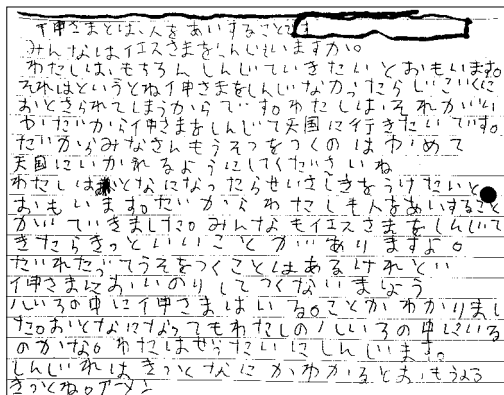 神さまとは、人をあいすることです
みんなはイエスさまをしんじていますか。
わたしは、もちろんしんじていきたいとおもいます。
それはというとね神さまをしんじなかったらじごくに
おとされてしまうからです。わたしは、それがい
やだから神さまをしんじて天国に行きたいです。
だからみなさんもうそをつくのはやめて
天国にいかれるようにしてくださいね
わたしはおとなになったらせいしきをうけたいと
おもいます。だからわたしも人をあいすること
ができました。みんなもイエスさまをしんじて
きたらきっといいことがありますよ。
だれだってうそをつくことはあるけれど
神さまにおいのりしてつくないましょう
心の中に神さまはいる。ことがわかりまし
た。おとなになってもわたしの心の中にいる
のかな。わたしはぜったいにしんじます。
しんじればきっとなにかわかるとおもうよ
きっとね。アーメン